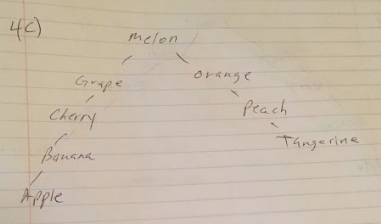 4c)
melon
Grape
orange
Cherry
Peach
Banana
Tangerine
Apple